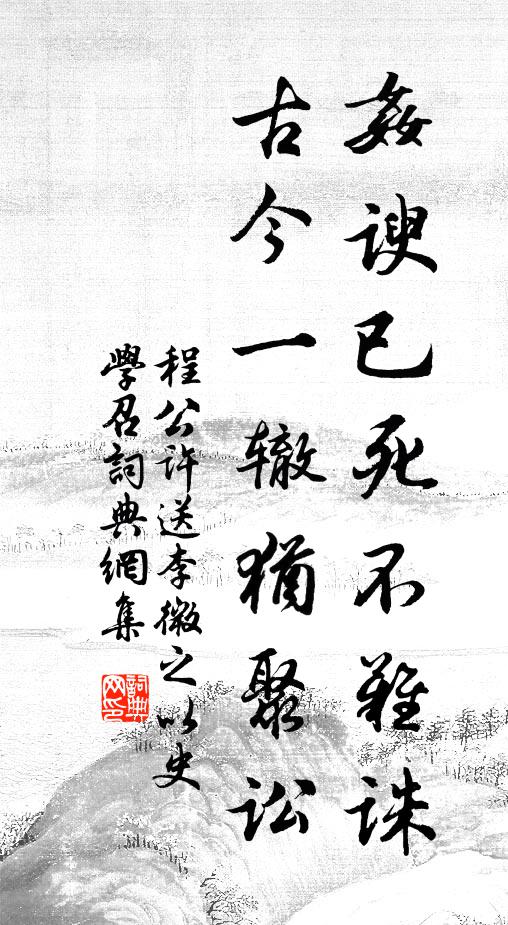 姦諛已死不難誅
古今一辙猶聚訟
程公許送李微之以史
學召詞典網集
詞典网印